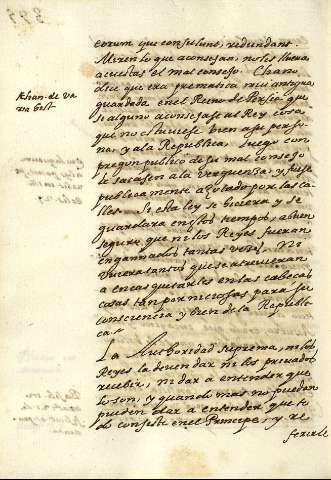 eorum que consulunt, redundant.
Miren lo que aconsejan, no les llueva
acuestas el mal consejo. Chano
dice que era prematica mui antigua
guardada en el Reino de Persia que
si alguno aconsejase al Rey cosa
que no estuviese bien a su perso
na, y ala Republica, luego con
pregon publico de su mal consejo
le sacasen ala verguenza, y fuese
publicamente açotado por las ca
lles. Si esta ley se huviera y se
guardara en estos tiempos, a buen
seguro que ni los Reyes fueran
engañados tantas veces. Ni
uviera tantos que se atrevieran
a encasquetarles en las cabeças
cosas tan perniciosas para su
consciencia y bien de la Republi
ca.
La Authoridad suprema, ni los
Reyes la deven dar ni los privados
recebir, ni dar a entender que
lo son, y quando mas no puedan
pueden dar a entender que to
do consiste en el Principe, y re
ferirle
Khan. de va
ria hist.